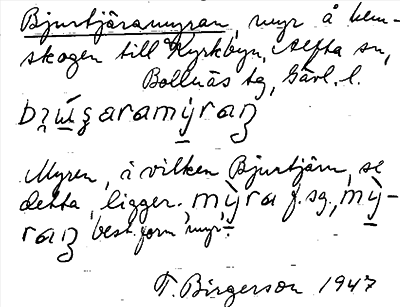 Bjurtjäramyran, myr å hem-
skogen till Kyrkbyn, Alfta sn,
Bollnäs tg, Gävl. l.
Myren, i vilken Bjurtjärn, se
detta, ligger. mỳra f. sg., mỳ-
raɲ best. form 'myr'.
T. Birgerson 1947